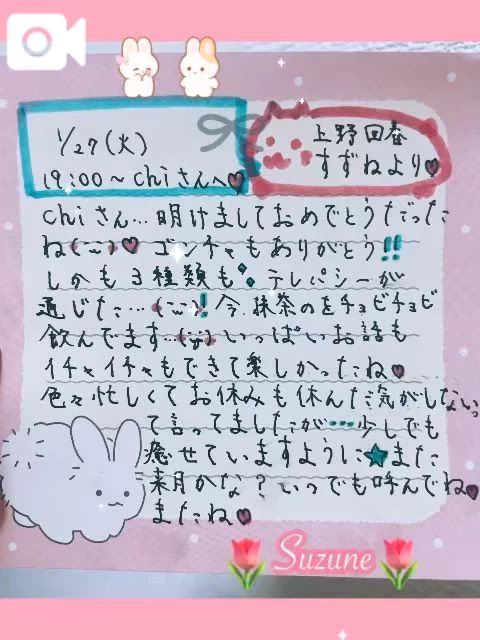 1/27(火)
19:00〜chiさんへ♥
上野回春
すずねより♥
chiさん…明けましておめでとうだった
ね(¨)♥ ゴンチャもありがとう!!
しかも3種類も テレパシーが
通じた…(¨)! 今、抹茶のをチョビチョビ
飲んでます…(¨) いっぱいお話も
イチャイチャもできて楽しかったね♥
色々忙しくてお休みも休んだ気がしないっ
て言ってましたが…少しでも
癒せていますように★また
来月かな?いつでも呼んでね♥
またね♥
Suzune